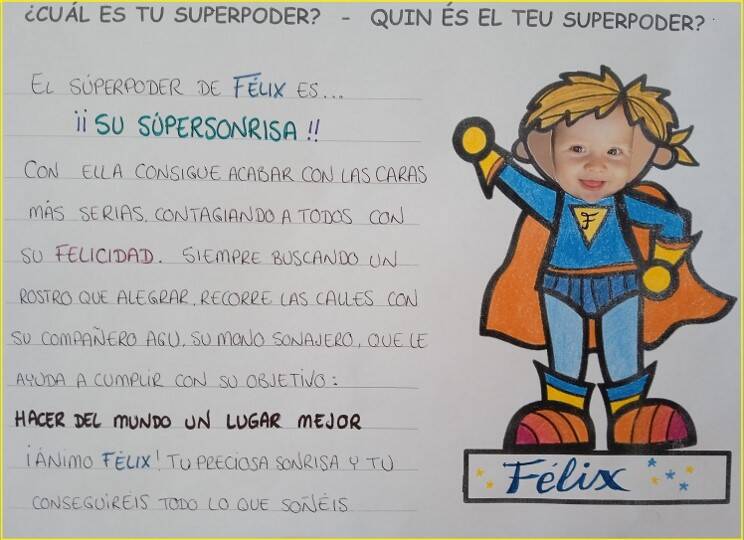 ¿CUÁL ES TU SUPERPODER? - QUIN ÉS EL TEU SUPERPODER?
EL SÚPERPODER DE FÉLIX ES...
¡¡ SU SÚPERSONRISA !!
CON ELLA CONSIGUE ACABAR CON LAS CARAS
MÁS SERIAS, CONTAGIANDO A TODOS CON
SU FELICIDAD. SIEMPRE BUSCANDO UN
ROSTRO QUE ALEGRAR, RECORRE LAS CALLES CON
SU COMPAÑERO AGU, SU MONO SONAJERO, QUE LE
AYUDA A CUMPLIR CON SU OBJETIVO:
HACER DEL MUNDO UN LUGAR MEJOR
¡ÁNIMO FÉLIX! TU PRECIOSA SONRISA Y TU
CONSEGUIREIS TODO LO QUE SOÑÉIS
F
Félix